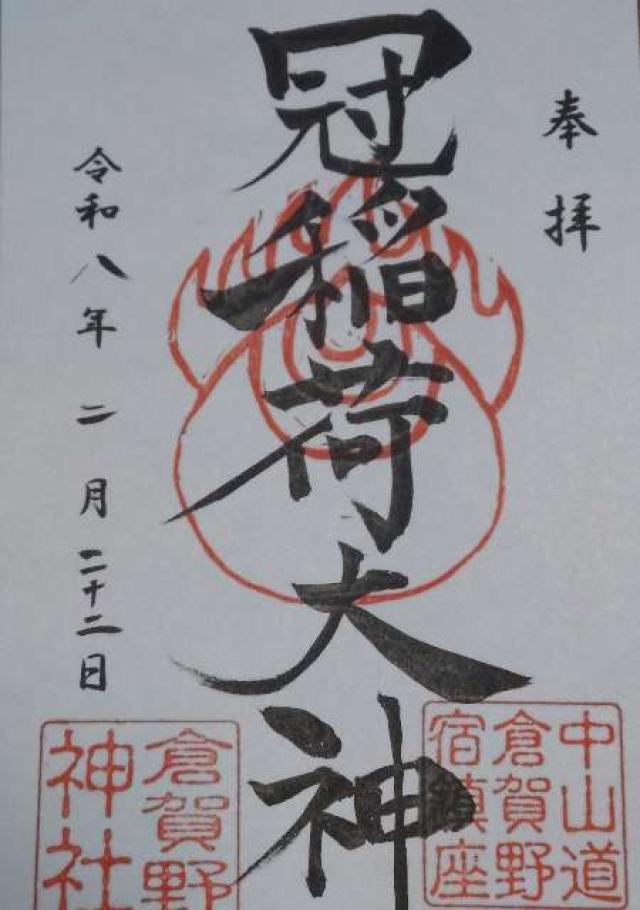 奉拝
冠稲荷大神
令和八年二月二十二日
中山道
倉賀野
宿鎮座
倉賀野
神社